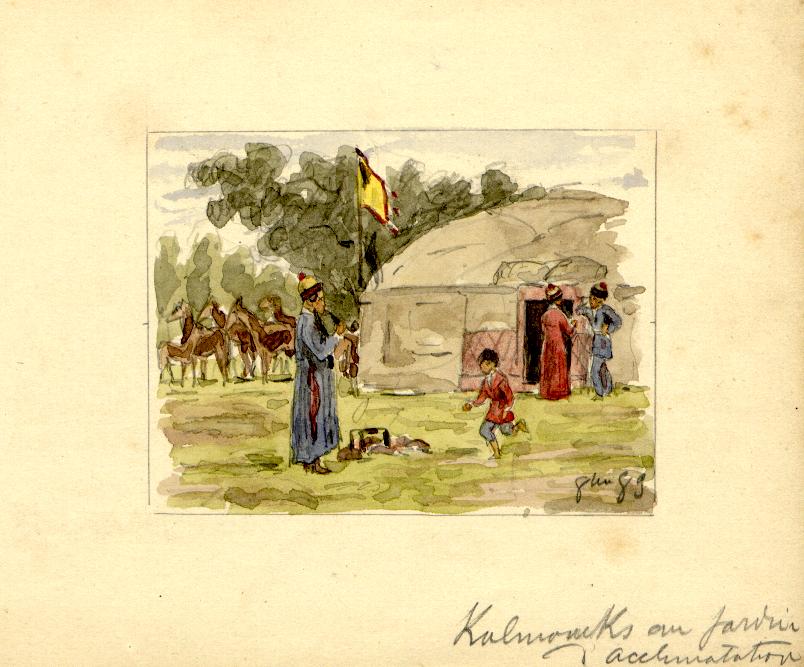 Kalmoucks au jardin
d'acclimatation